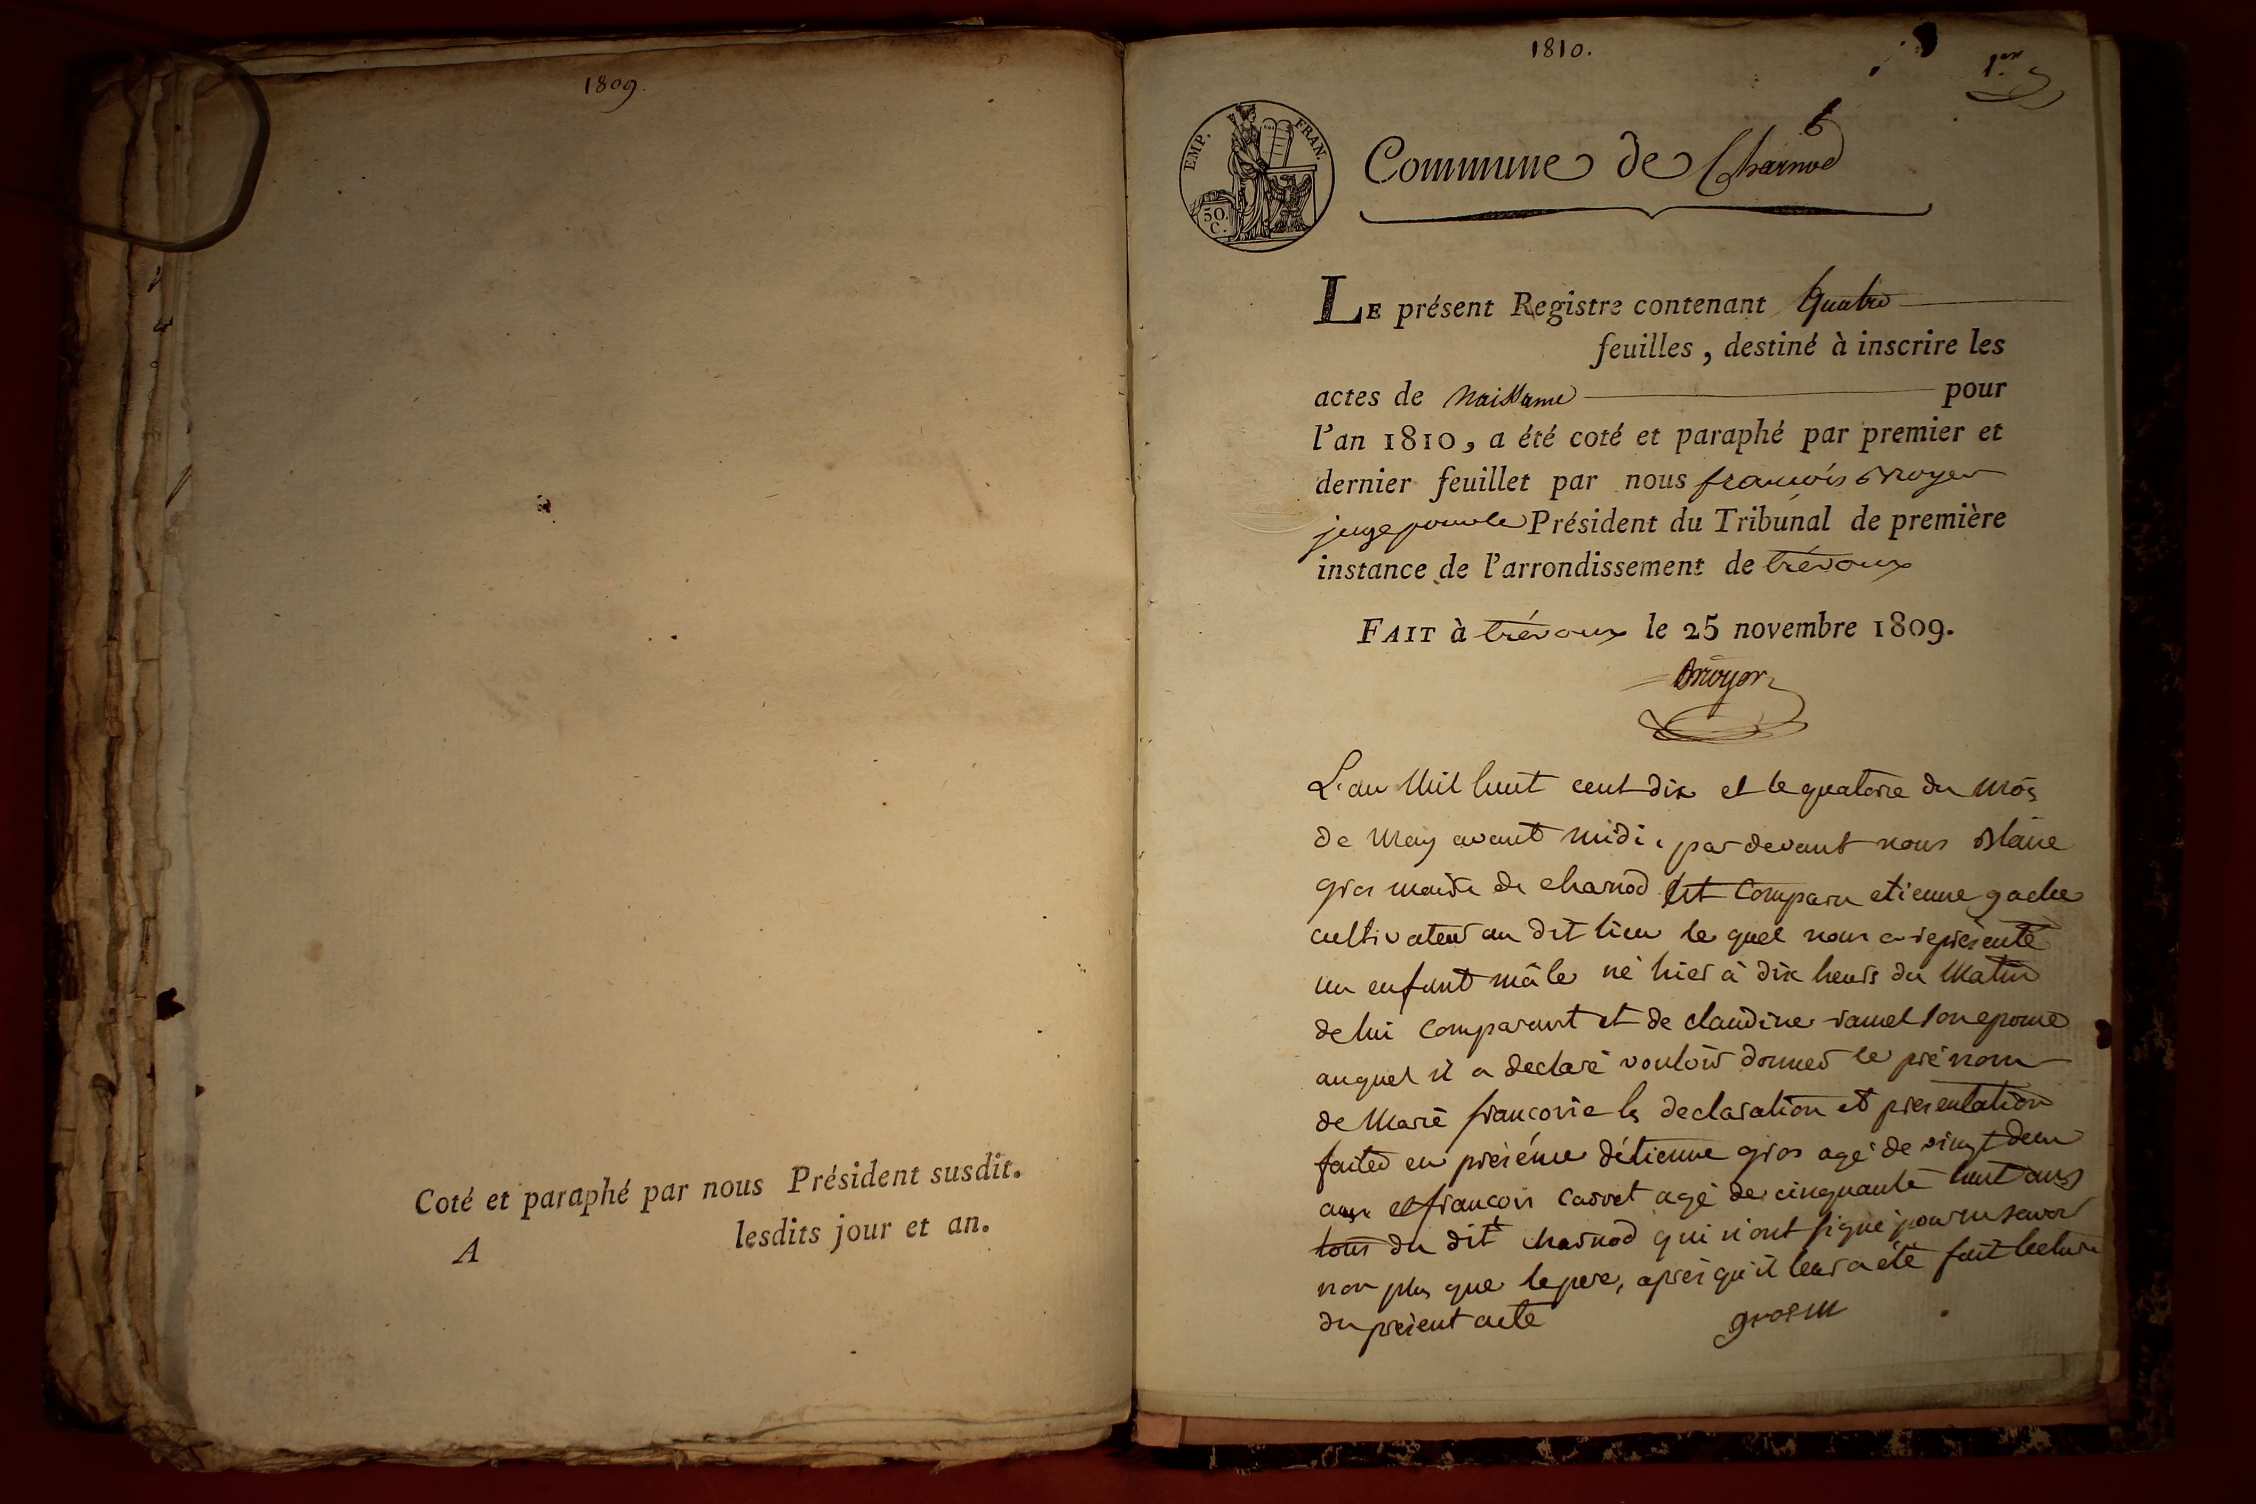 1809.
Coté et paraphé par nous Président susdit.
lesdits jour et an.
A
1810.
1.er
EMP. FRAN.
50.
C.
Commune de Charnod
LE présent Registre contenant quatre
feuilles, destiné à inscrire les
actes de Naissance pour
l'an 1810, a été coté et paraphé par premier et
dernier feuillet par nous françois Bruyer
juge pour le Président du Tribunal de première
instance de l'arrondissement de trévoux
FAIT à trévoux le 25 novembre 1809.
L'an Mil huit cent dix et le quatorze du mois
de may avant midi, par devant nous Blaise
gros maire de charnod est Comparu etienne gache
cultivateur au dit lieu le quel nous a représenté
un enfant mâle né hier à dix heurs du Matin
de lui Comparant et de claudine ramel son epouse
auquel il a declaré vouloir donner le prénom
de Marie francoise les declaration et presentation
faites en présence détienne gros agé de vingt deux
ans et francois Carret agé de cinquante huit ans
tous du dit charnod qui n'ont signé pour ne savoir
non plus que le pere, aprés qu'il leur a été fait lecture
du présent acte
gros m